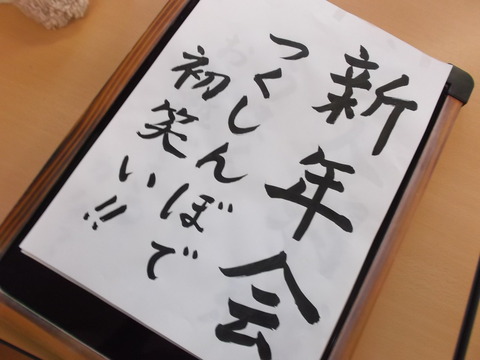 新年会
つくしんぼで
初笑い!!